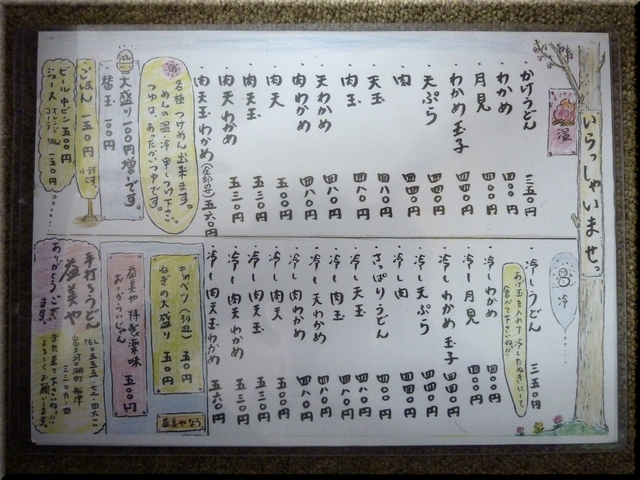 いらっしゃいませっ
温
・かけうどん 三五〇円
・わかめ 四〇〇円
・月見 四〇〇円
・わかめ玉子 四四〇円
・天ぷら 四四〇円
・肉 四四〇円
・天玉 四八〇円
・肉玉 四八〇円
・天わかめ 四八〇円
・肉わかめ 四八〇円
・肉天 五〇〇円
・肉天玉 五三〇円
・肉天わかめ 五三〇円
・肉天玉わかめ(全部盛) 五六〇円
各種つけめん出来ます。
めんの温・冷申しつけ下さい。
つゆは、あったかいつゆです。
大盛り一〇〇円増しです。
替玉 一〇〇円
ごはん 一五〇円
ビール中ビン 五〇〇円
ジュース 一五〇円
冷
・冷しうどん 三五〇円
あげ玉を入れて冷したぬきにして
食べて下さいね!!
・冷しわかめ 四〇〇円
・冷し月見 四〇〇円
・冷しわかめ玉子 四四〇円
・冷し天ぷら 四四〇円
・冷し肉 四四〇円
・さっぱりうどん 四八〇円
・冷し天玉 四八〇円
・冷し肉玉 四八〇円
・冷し天わかめ 四八〇円
・冷し肉わかめ 四八〇円
・冷し肉天 五〇〇円
・冷し肉天玉 五三〇円
・冷し肉天わかめ 五三〇円
・冷し肉天玉わかめ 五六〇円
キャベツ(別皿) 五〇円
ねぎの大盛り 五〇円
益美や特製薬味
五〇〇円
手打ちうどん
益美や
ありがとうござい
ます。
また来て下さいね!!
よろしくお願いします。